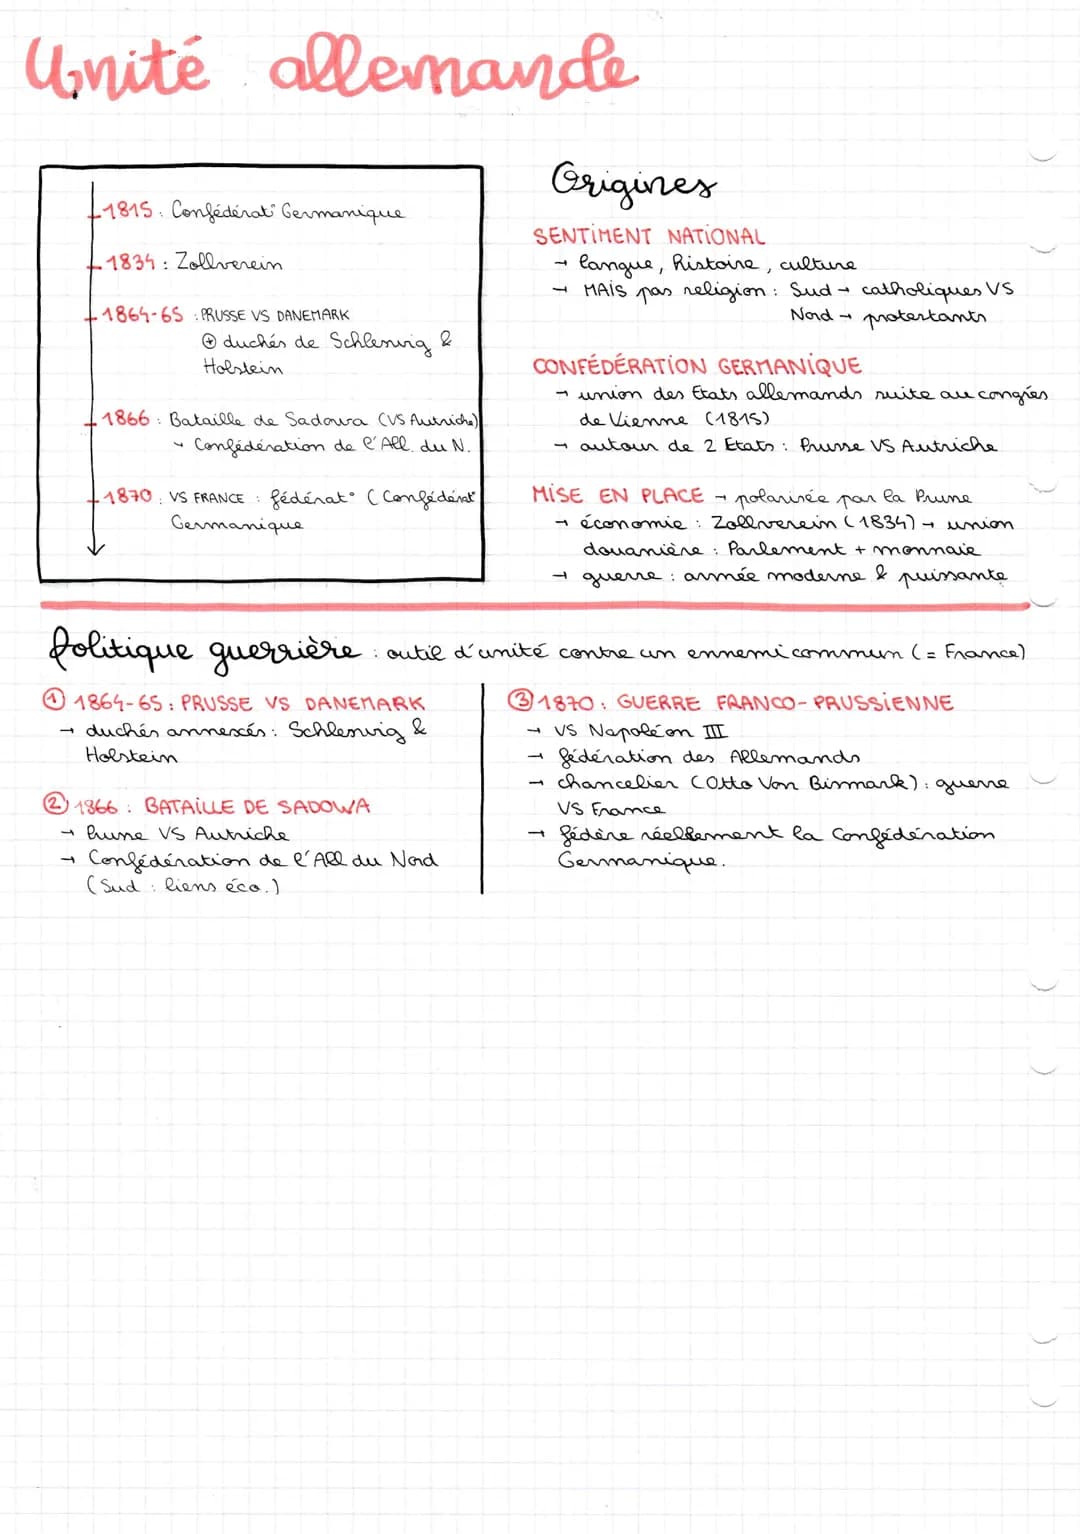 Unité allemande
1815 : Confédérat° Germanique
1834 : Zollverein
1864-65 : PRUSSE VS DANEMARK
⊕ duchés de Schleswig &
Holstein
1866 : Bataille de Sadowa (VS Autriche)
→ Confédération de l'All. du N.
1870 : VS FRANCE : fédérat° (Confédérat°
Germanique
Origines
SENTIMENT NATIONAL
→ langue, histoire, culture
→ MAIS pas religion : Sud → catholiques VS
Nord → protestants
CONFÉDÉRATION GERMANIQUE
→ union des Etats allemands suite au congrès
de Vienne (1815)
→ autour de 2 Etats : Prusse VS Autriche
MISE EN PLACE → polarisée par la Prusse
→ économie : Zollverein (1834) → union
douanière : Parlement + monnaie
→ guerre : armée moderne & puissante
Politique guerrière : outil d'unité contre un ennemi commun (= France)
① 1864-65 : PRUSSE VS DANEMARK
→ duchés annexés : Schleswig &
Holstein
② 1866 : BATAILLE DE SADOWA
→ Prusse VS Autriche
→ Confédération de l'All du Nord
(Sud : liens éco.)
③ 1870 : GUERRE FRANCO-PRUSSIENNE
→ VS Napoléon III
→ fédération des Allemands
→ chancelier (Otto Von Bismark) : guerre
VS France
→ fédère réellement la Confédération
Germanique.